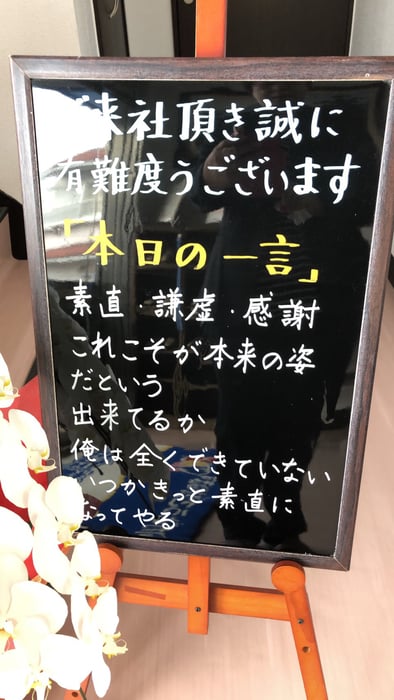 ご来社頂き誠に
有難度うございます
「本日の一言」
素直 謙虚・感謝
これこそが本来の姿
だという
出来てるか
俺は全くできていない
いつかきっと素直に
なってやる